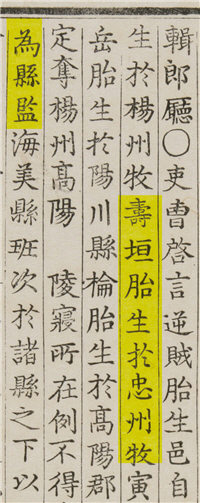 輯郎廳○吏曺啓言逆賊胎生邑自
生於楊州牧壽垣胎生於忠州牧寅
岳胎生於陽川縣楡胎生於高陽郡
定奪楊州高陽 陵寢所在例不得
為縣監海美縣班次於諸縣之下以